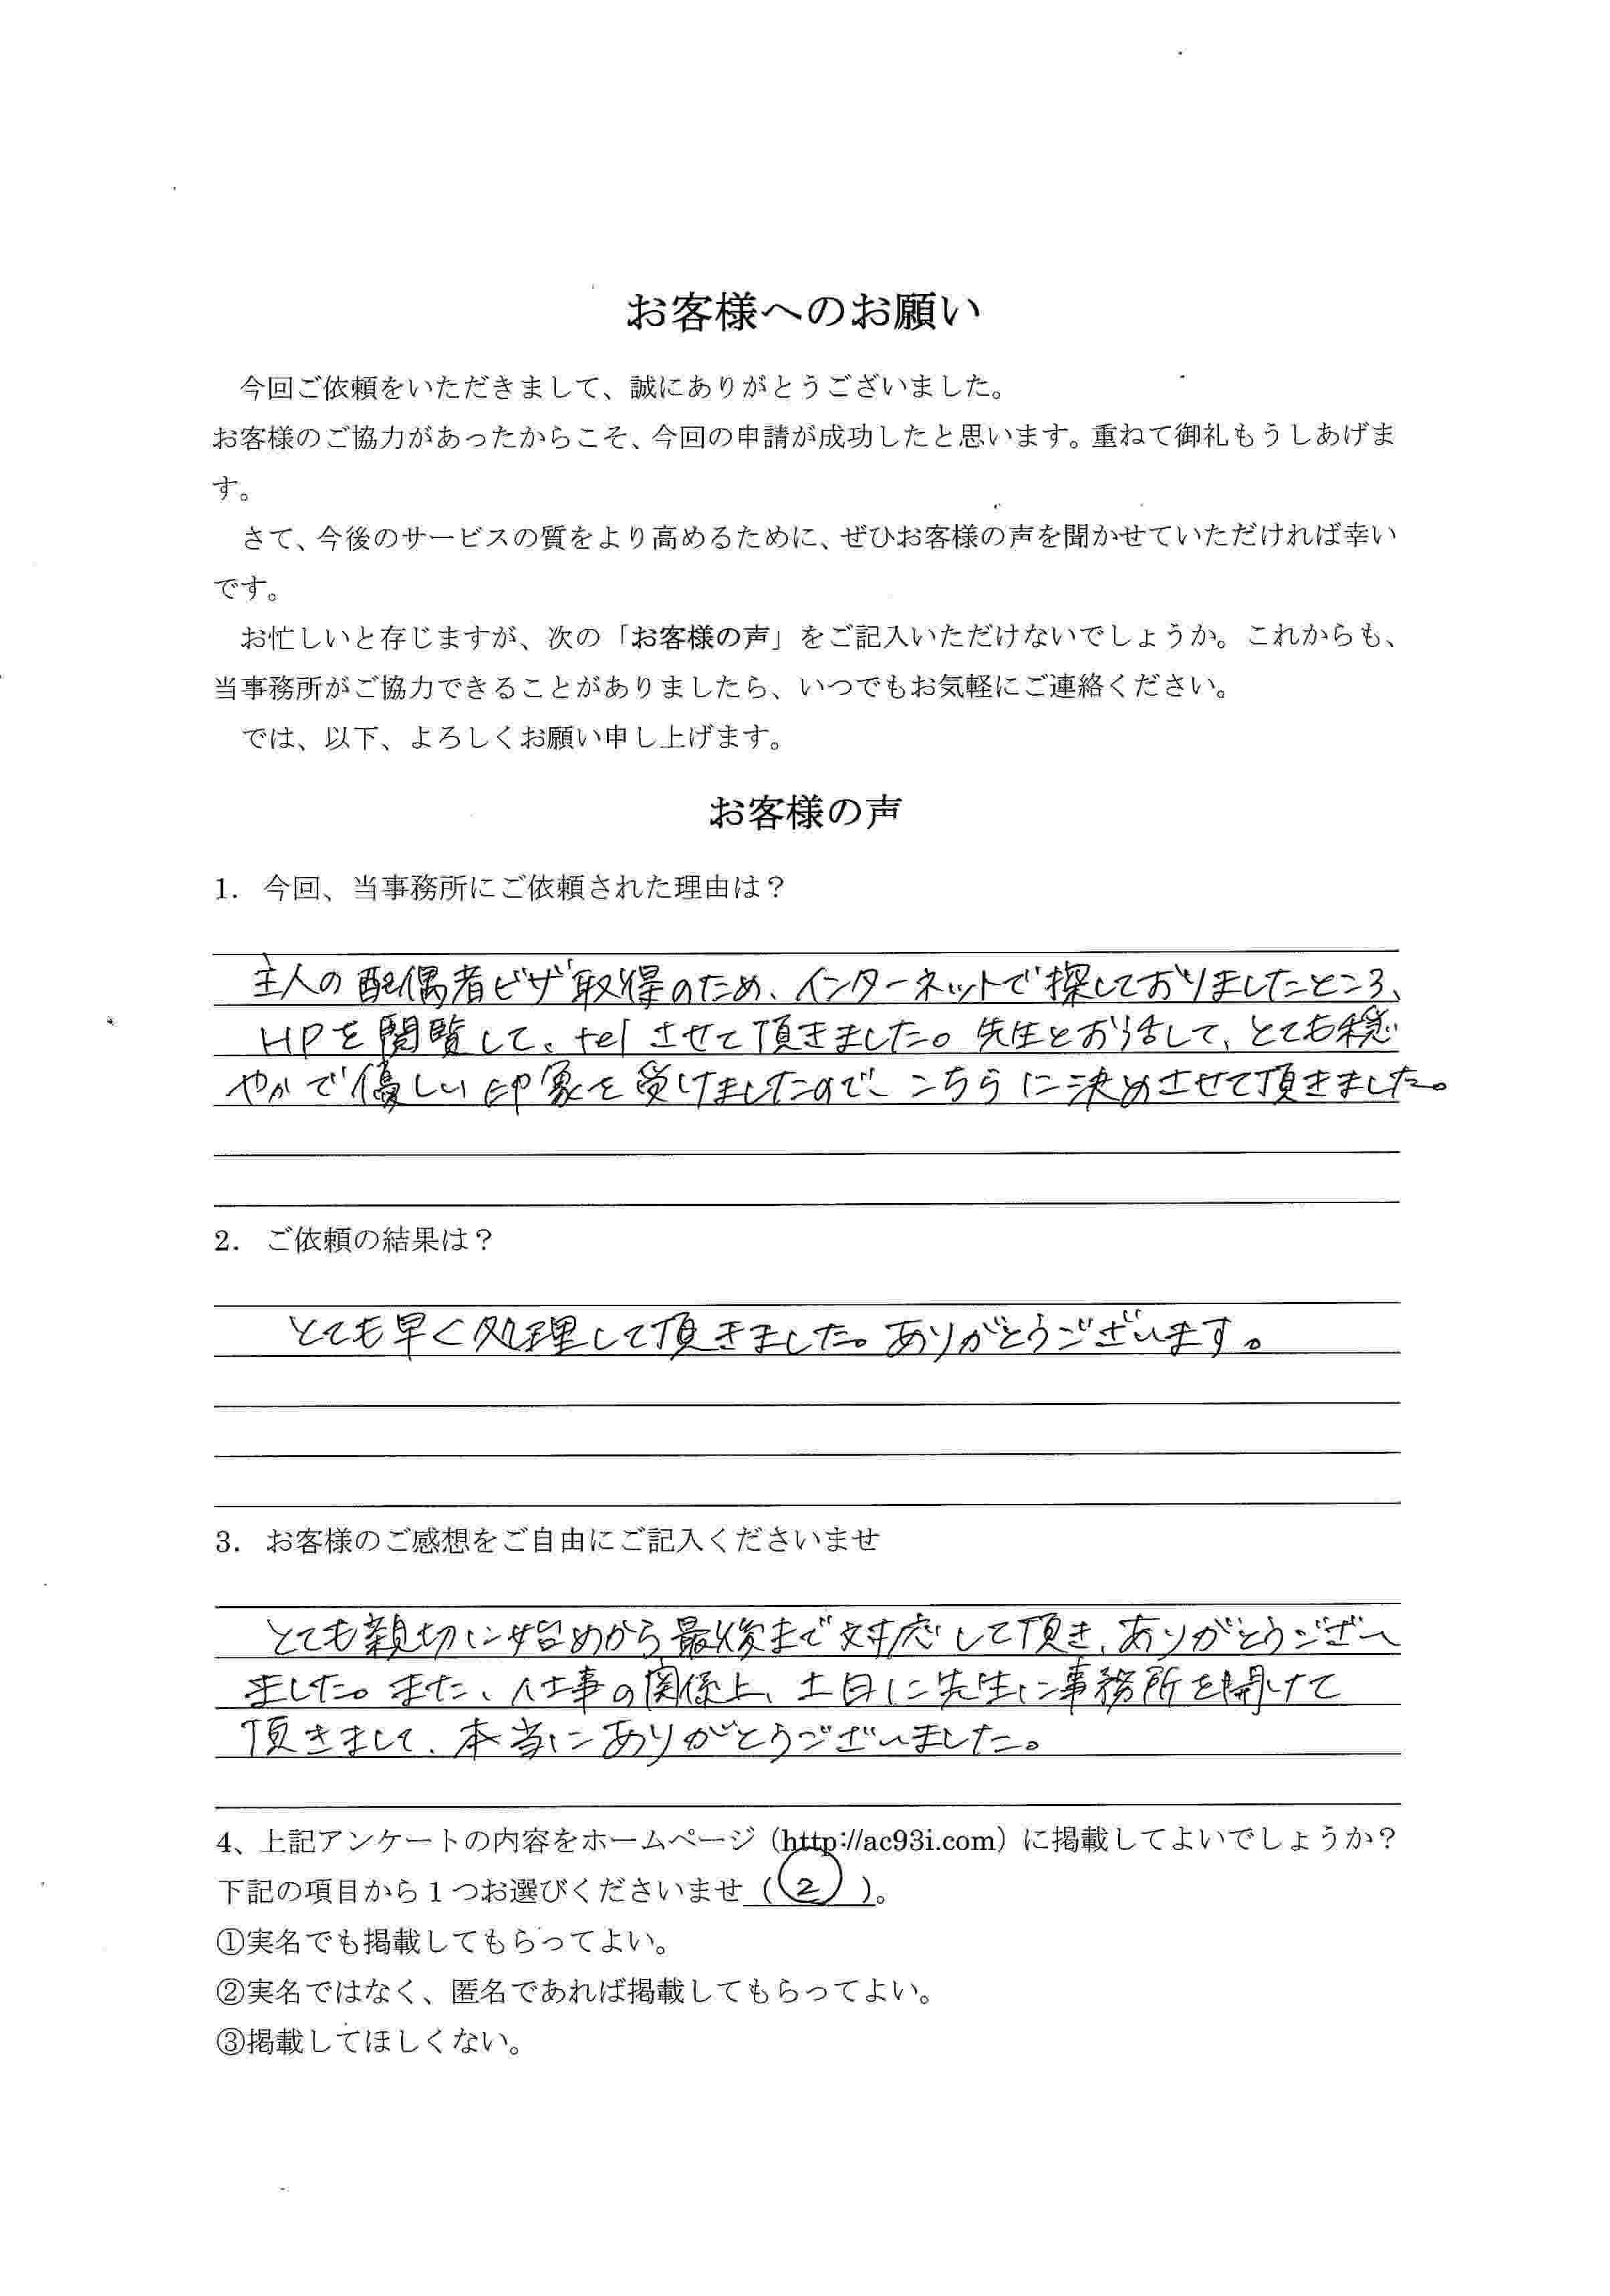 お客様へのお願い
今回ご依頼をいただきまして、誠にありがとうございました。
お客様のご協力があったからこそ、今回の申請が成功したと思います。重ねて御礼もうしあげま
す。
さて、今後のサービスの質をより高めるために、ぜひお客様の声を聞かせていただければ幸い
です。
お忙しいと存じますが、次の「お客様の声」をご記入いただけないでしょうか。これからも、
当事務所がご協力できることがありましたら、いつでもお気軽にご連絡ください。
では、以下、よろしくお願い申し上げます。
お客様の声
1. 今回、当事務所にご依頼された理由は？
主人の配偶者ビザ取得のため、インターネットで探しておりましたところ、
HPを閲覧して、telさせて頂きました。先生とお話して、とても穏
やかで優しい印象を受けましたので、こちらに決めさせて頂きました。
2. ご依頼の結果は？
とても早く処理して頂きました。ありがとうございます。
3. お客様のご感想をご自由にご記入くださいませ
とても親切に始めから最後まで対応して頂き、ありがとうござい
ました。また、仕事の関係上、土日に先生に事務所を開けて
頂きまして、本当にありがとうございました。
4、上記アンケートの内容をホームページ（http://ac93i.com）に掲載してよいでしょうか？
下記の項目から１つお選びくださいませ（②）。
①実名でも掲載してもらってよい。
②実名ではなく、匿名であれば掲載してもらってよい。
③掲載してほしくない。